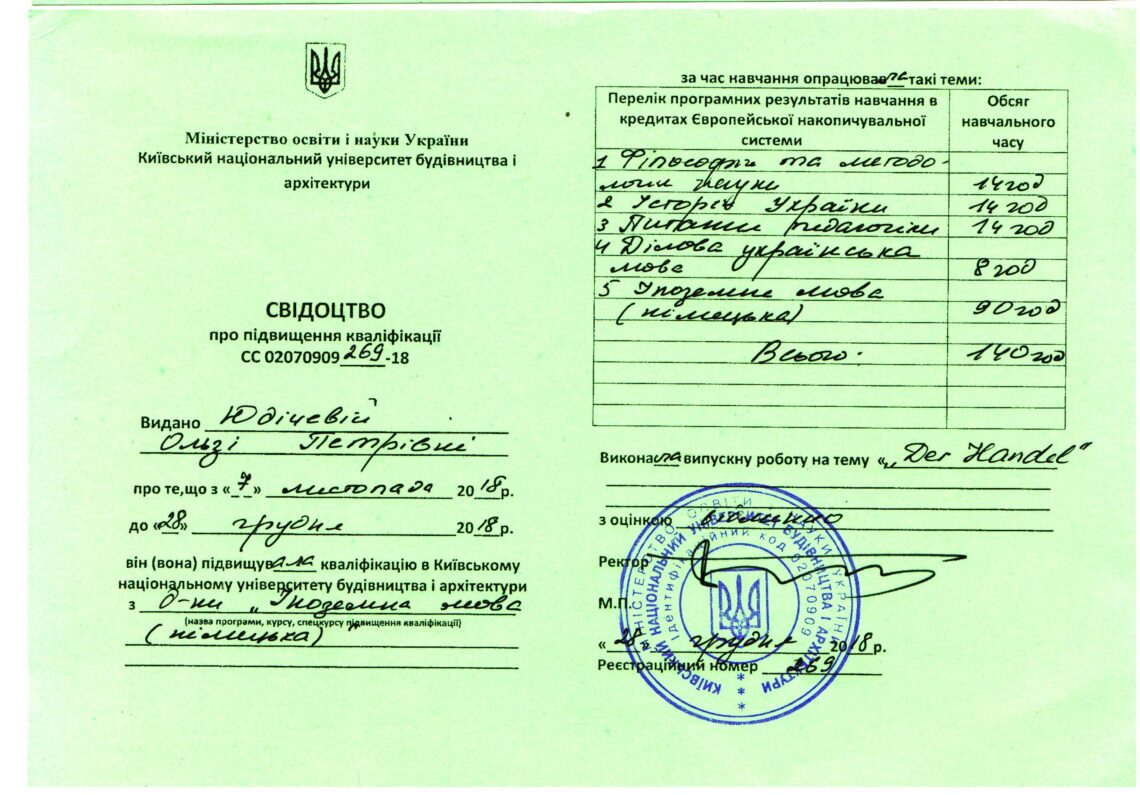 Міністерство освіти і науки України
Київський національний університет будівництва і
архітектури
СВІДОЦТВО
про підвищення кваліфікації
СС 02070909 269 -18
Видано Юдічевій
Ользі Петрівні
про те,що з «7» листопада 2018р.
до «28» грудня 2018р.
він (вона) підвищувала кваліфікацію в Київському
національному університету будівництва і архітектури
з д-ни „Іноземна мова
(назва програми, курсу, спецкурсу підвищення кваліфікації)
(німецька)"
за час навчання опрацювала такі теми:
Перелік програмних результатів навчання в кредитах Європейської накопичувальної системи
Обсяг навчального часу
1 Філософія та методо-
логія науки 14 год
2 Історія України 14 год
3 Питання педагогіки 14 год
4 Ділова українська
мова 8 год
5 Іноземна мова
(німецька) 90 год
Всього: 140 год
Виконала випускну роботу на тему «„Der Handel"
з оцінкою відмінно
Ректор
М.П.
«28» грудня 2018р.
Реєстраційний номер 269
МІНІСТЕРСТВО ОСВІТИ І НАУКИ УКРАЇНИ
КИЇВСЬКИЙ НАЦІОНАЛЬНИЙ УНІВЕРСИТЕТ БУДІВНИЦТВА І АРХІТЕКТУРИ
Ідентифікаційний код 02070909